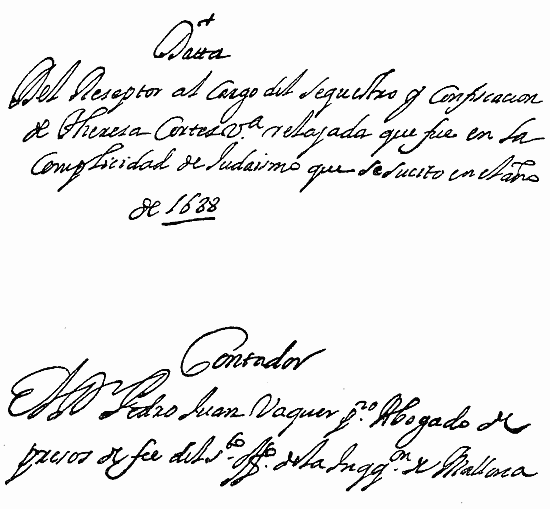 Datta
Del Reseptor al Cargo del sequestro y Confiscacion
de Theresa Cortes v.ª relajada que fue en la
Complicidad de Judaismo que se sucito en el año
de 1688
Contador
El D.ʳ Pedro Juan Vaquer p.ʳᵒ Abogado de
presos de fee del s.ᵗᵒ off.º de la Inqq.ᵒⁿ de Mallorca